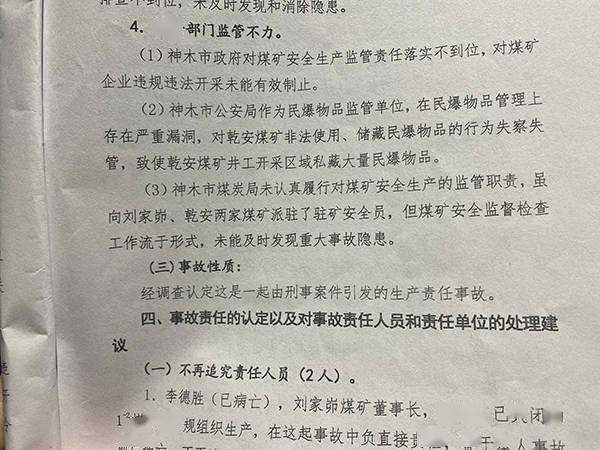 排查不到位，未及时发现和消除隐患。
4. 部门监管不力。
（1）神木市政府对煤矿安全生产监管责任落实不到位，对煤矿
企业违规违法开采未能有效制止。
（2）神木市公安局作为民爆物品监管单位，在民爆物品管理上
存在严重漏洞，对乾安煤矿非法使用、储藏民爆物品的行为失察失
管，致使乾安煤矿井工开采区域私藏大量民爆物品。
（3）神木市煤炭局未认真履行对煤矿安全生产的监管职责，虽
向刘家峁、乾安两家煤矿派驻了驻矿安全员，但煤矿安全监督检查
工作流于形式，未能及时发现重大事故隐患。
（三）事故性质：
经调查认定这是一起由刑事案件引发的生产责任事故。
四、事故责任的认定以及对事故责任人员和责任单位的处理建
议
（一）不再追究责任人员（2人）。
1. 李德胜（已病亡），刘家峁煤矿董事长， 已关闭
规组织生产，在这起事故中负直接责 于 人事故